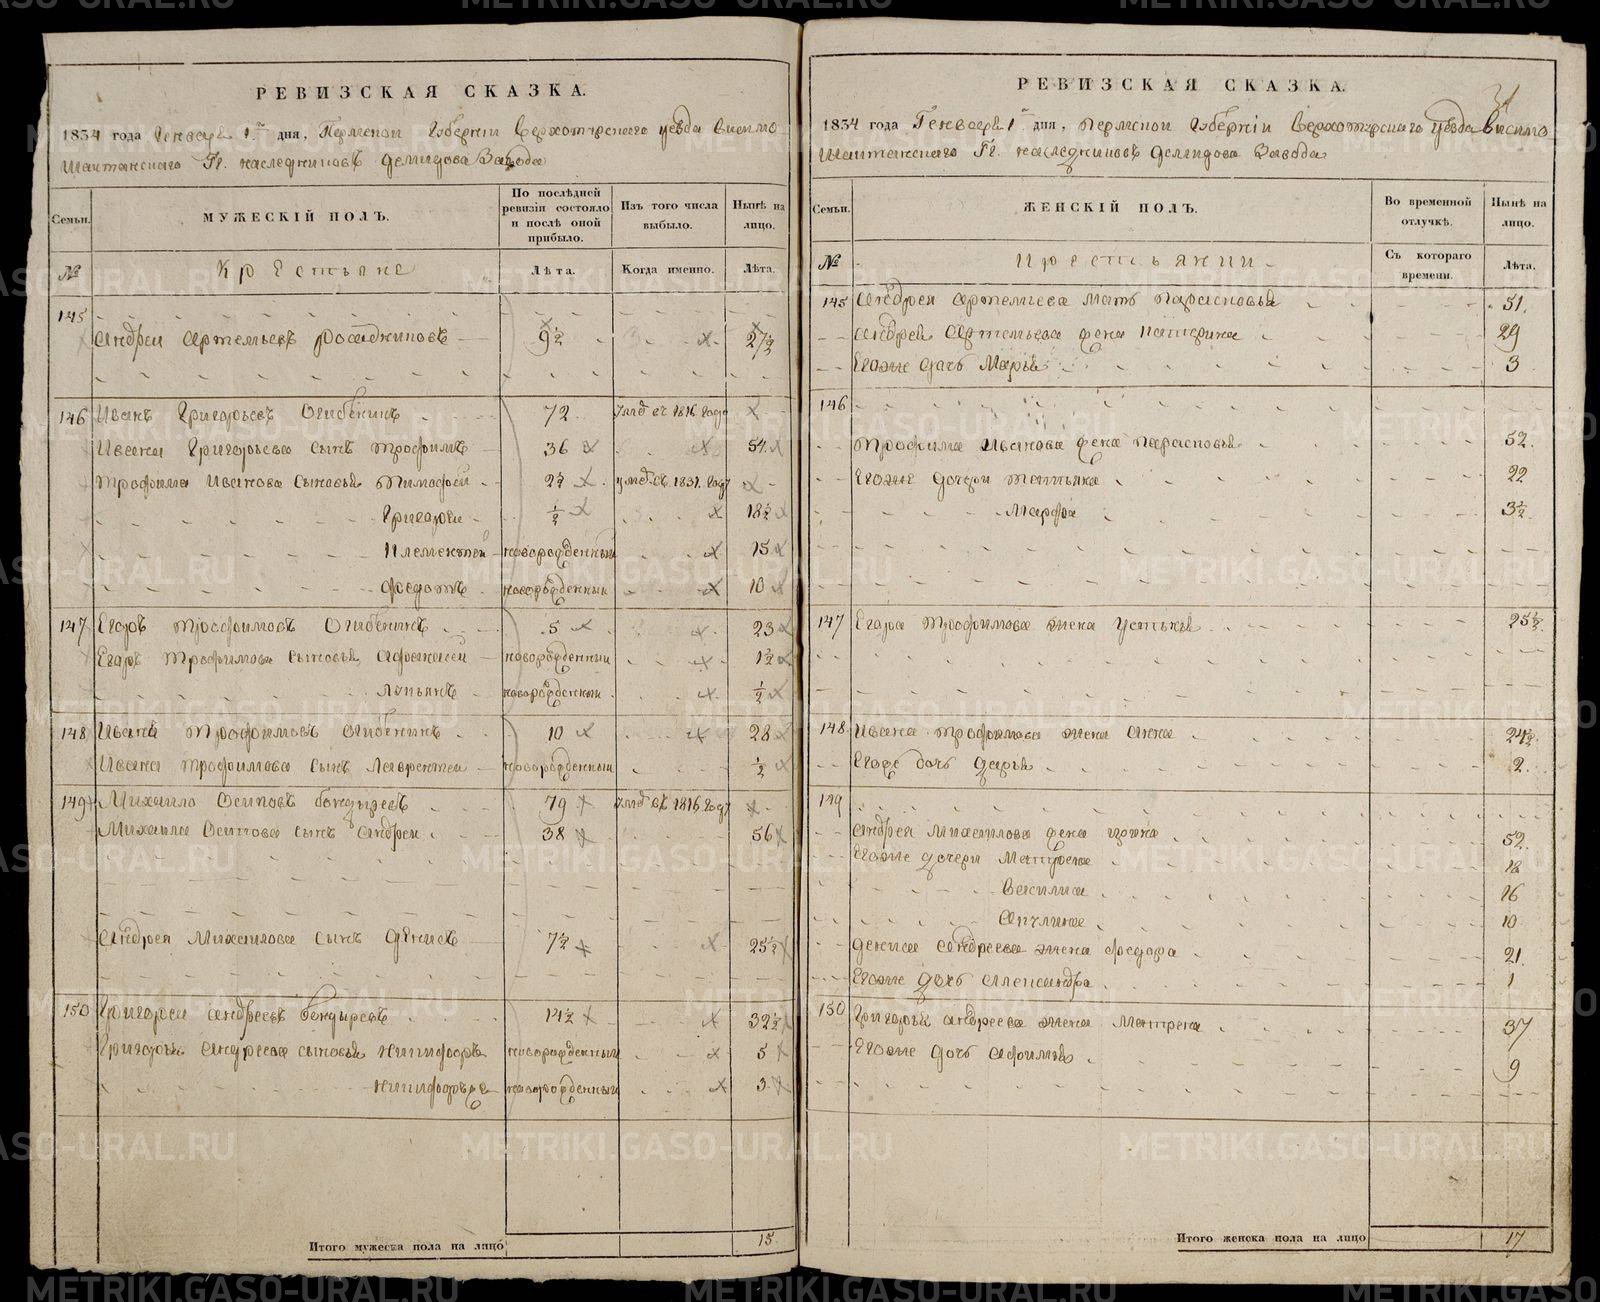 РЕВИЗСКАЯ СКАЗКА.
1834 года Генваря 1 дня, Пермской Губернiи Верхотурского уѣзда Висимо
Шайтанского Гг. наслѣдниковъ Демидова Завода
Семьи.
МУЖЕСКIЙ ПОЛЪ.
По послѣдней ревизiи состояло и послѣ оной прибыло.
Изъ того числа выбыло.
Нынѣ на лицо.
№
Крестьяне
Лѣта.
Когда именно.
Лѣта.
145
Андрей Артемьевъ 9½ 27½
146 Иванъ Григорьевъ Огибенинъ 72 умѣ въ 1816 году
Ивана Григорьева сынъ Трофимъ 36 54
Трофима Иванова сыновья Тимофей 2½ умѣ въ 1831 году
Григорей ½ 18½
Клементей новорожденный 15
Федотъ новорожденный 10
147 Егоръ Трофимовъ Огибенинъ 5 23
Егора Трофимова сыновья Афонасей новорожденный 1½
Лукьянъ новорожденный ½
148 Иванъ Трофимовъ Огибенинъ 10 28
Ивана Трофимова сынъ Лаврентей новорожденный ½
149 Михайло Осиповъ Бондыревъ 79 умѣ въ 1816 году
Михайла Осипова сынъ Андрей 38 56
Андрея Михайлова сынъ Денисъ 7½ 25½
150 Григорей Андреевъ Бондыревъ 14½ 32½
Григорья Андреева сыновья Никифоръ новорожденный 5
Никифоръ 2е новорожденный 3
Итого мужеска пола на лицо 15
РЕВИЗСКАЯ СКАЗКА.
1834 года Генваря 1 дня, Пермской Губернiи Верхотурского уѣзда Висимо
Шайтанского Гг. наслѣдниковъ Демидова Завода
Семьи.
ЖЕНСКIЙ ПОЛЪ.
Во временной отлучкѣ.
Нынѣ на лицо.
№
Съ котораго времени.
Лѣта.
145 Андрея Артемьева мать Парасковья 51.
Андрея Артемьева жена Катерина 29
Егоже дочь Марья 3
146
Трофима Иванова жена Парасковья 52.
Егоже дочери Татьяна 22
Марфа 3½
147 Егора Трофимова жена Устинья 25½
148 Ивана Трофимова жена Анна 24½
Егоже дочь Дарья 2.
149
Андрея Михайлова жена Ирина 52.
Егоже дочери Матрена 18
Василиса 16
Акулина 10
Дениса Андреева жена Федора 21.
Егоже дочь Александра 1
150 Григорья Андреева жена Матрена 37
Егоже дочь Афимья 9
Итого женска пола на лицо 17
METRIKI.GASO-URAL.RU